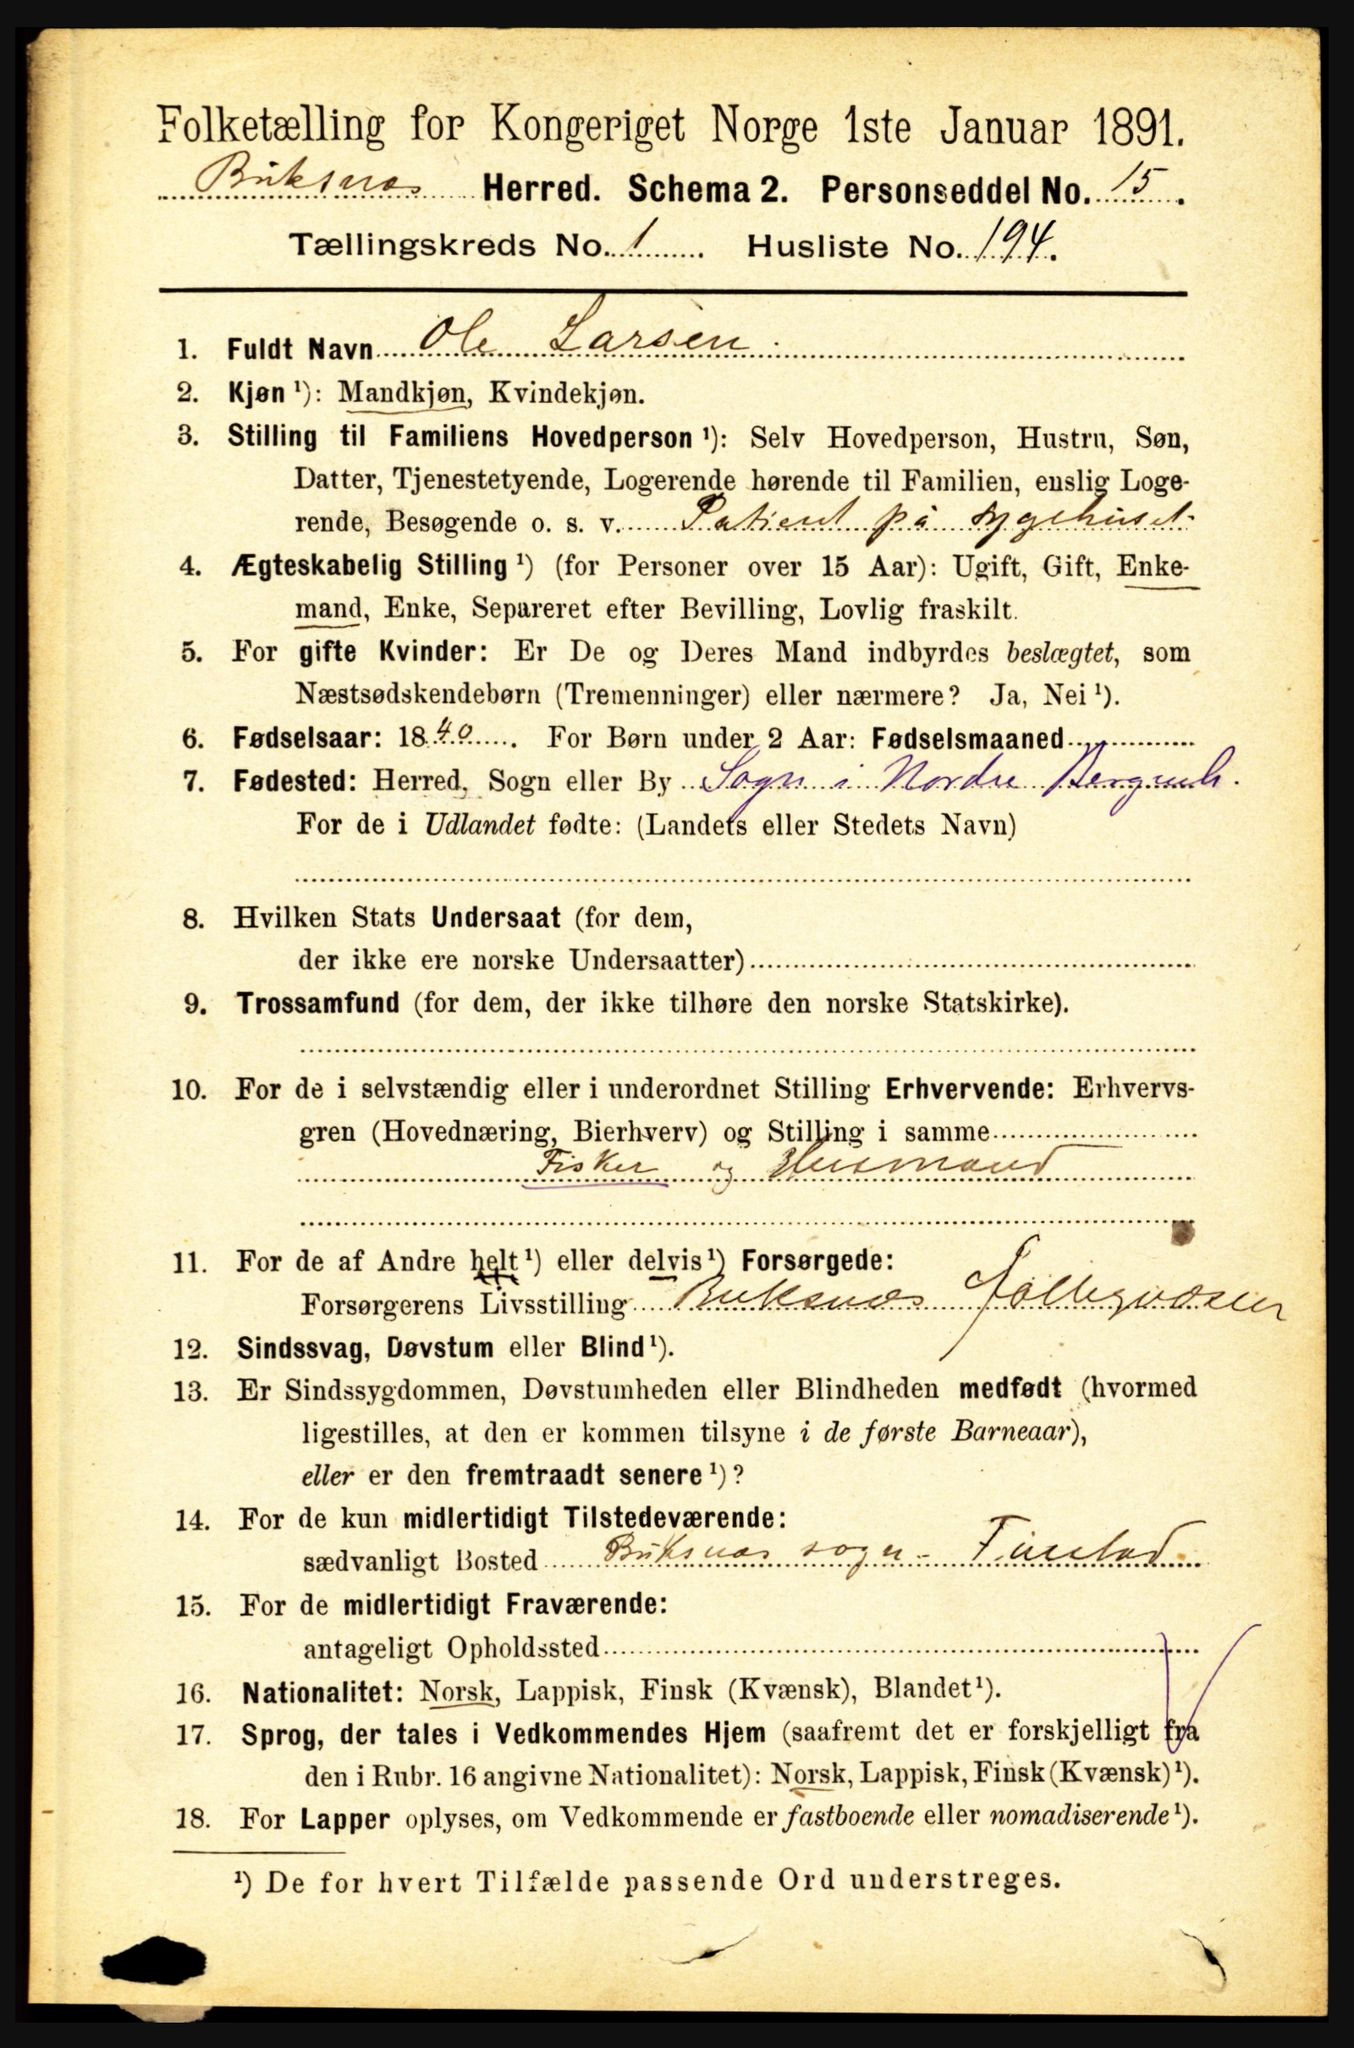 Folketælling for Kongeriget Norge 1ste Januar 1891.
Buksnæs Herred. Schema 2. Personseddel No. 15.
Tællingskreds No. 1. Husliste No. 194.
1. Fuldt Navn Ole Larsen.
2. Kjøn ¹): Mandkjøn, Kvindekjøn.
3. Stilling til Familiens Hovedperson ¹): Selv Hovedperson, Hustru, Søn,
Datter, Tjenestetyende, Logerende hørende til Familien, enslig Loge-
rende, Besøgende o. s. v. Patient på sygehuset
4. Ægteskabelig Stilling ¹) (for Personer over 15 Aar): Ugift, Gift, Enke-
mand, Enke, Separeret efter Bevilling, Lovlig fraskilt.
5. For gifte Kvinder: Er De og Deres Mand indbyrdes beslægtet, som
Næstsødskendebørn (Tremenninger) eller nærmere? Ja, Nei ¹).
6. Fødselsaar: 1840. For Børn under 2 Aar: Fødselsmaaned
7. Fødested: Herred, Sogn eller By Sogn i Nordre Bergenh.
For de i Udlandet fødte: (Landets eller Stedets Navn)
8. Hvilken Stats Undersaat (for dem,
der ikke ere norske Undersaatter)
9. Trossamfund (for dem, der ikke tilhøre den norske Statskirke).
10. For de i selvstændig eller i underordnet Stilling Erhvervende: Erhvervs-
gren (Hovednæring, Bierhverv) og Stilling i samme
Fisker og Husmand
11. For de af Andre helt ¹) eller delvis ¹) Forsørgede:
Forsørgerens Livsstilling Buksnæs
12. Sindssvag, Døvstum eller Blind ¹).
13. Er Sindssygdommen, Døvstumheden eller Blindheden medfødt (hvormed
ligestilles, at den er kommen tilsyne i de første Barneaar),
eller er den fremtraadt senere ¹)?
14. For de kun midlertidigt Tilstedeværende:
sædvanligt Bosted Buksnæs sogn -
15. For de midlertidigt Fraværende:
antageligt Opholdssted
16. Nationalitet: Norsk, Lappisk, Finsk (Kvænsk), Blandet ¹).
17. Sprog, der tales i Vedkommendes Hjem (saafremt det er forskjelligt fra
den i Rubr. 16 angivne Nationalitet): Norsk, Lappisk, Finsk (Kvænsk) ¹).
18. For Lapper oplyses, om Vedkommende er fastboende eller nomadiserende ¹).
¹) De for hvert Tilfælde passende Ord understreges.